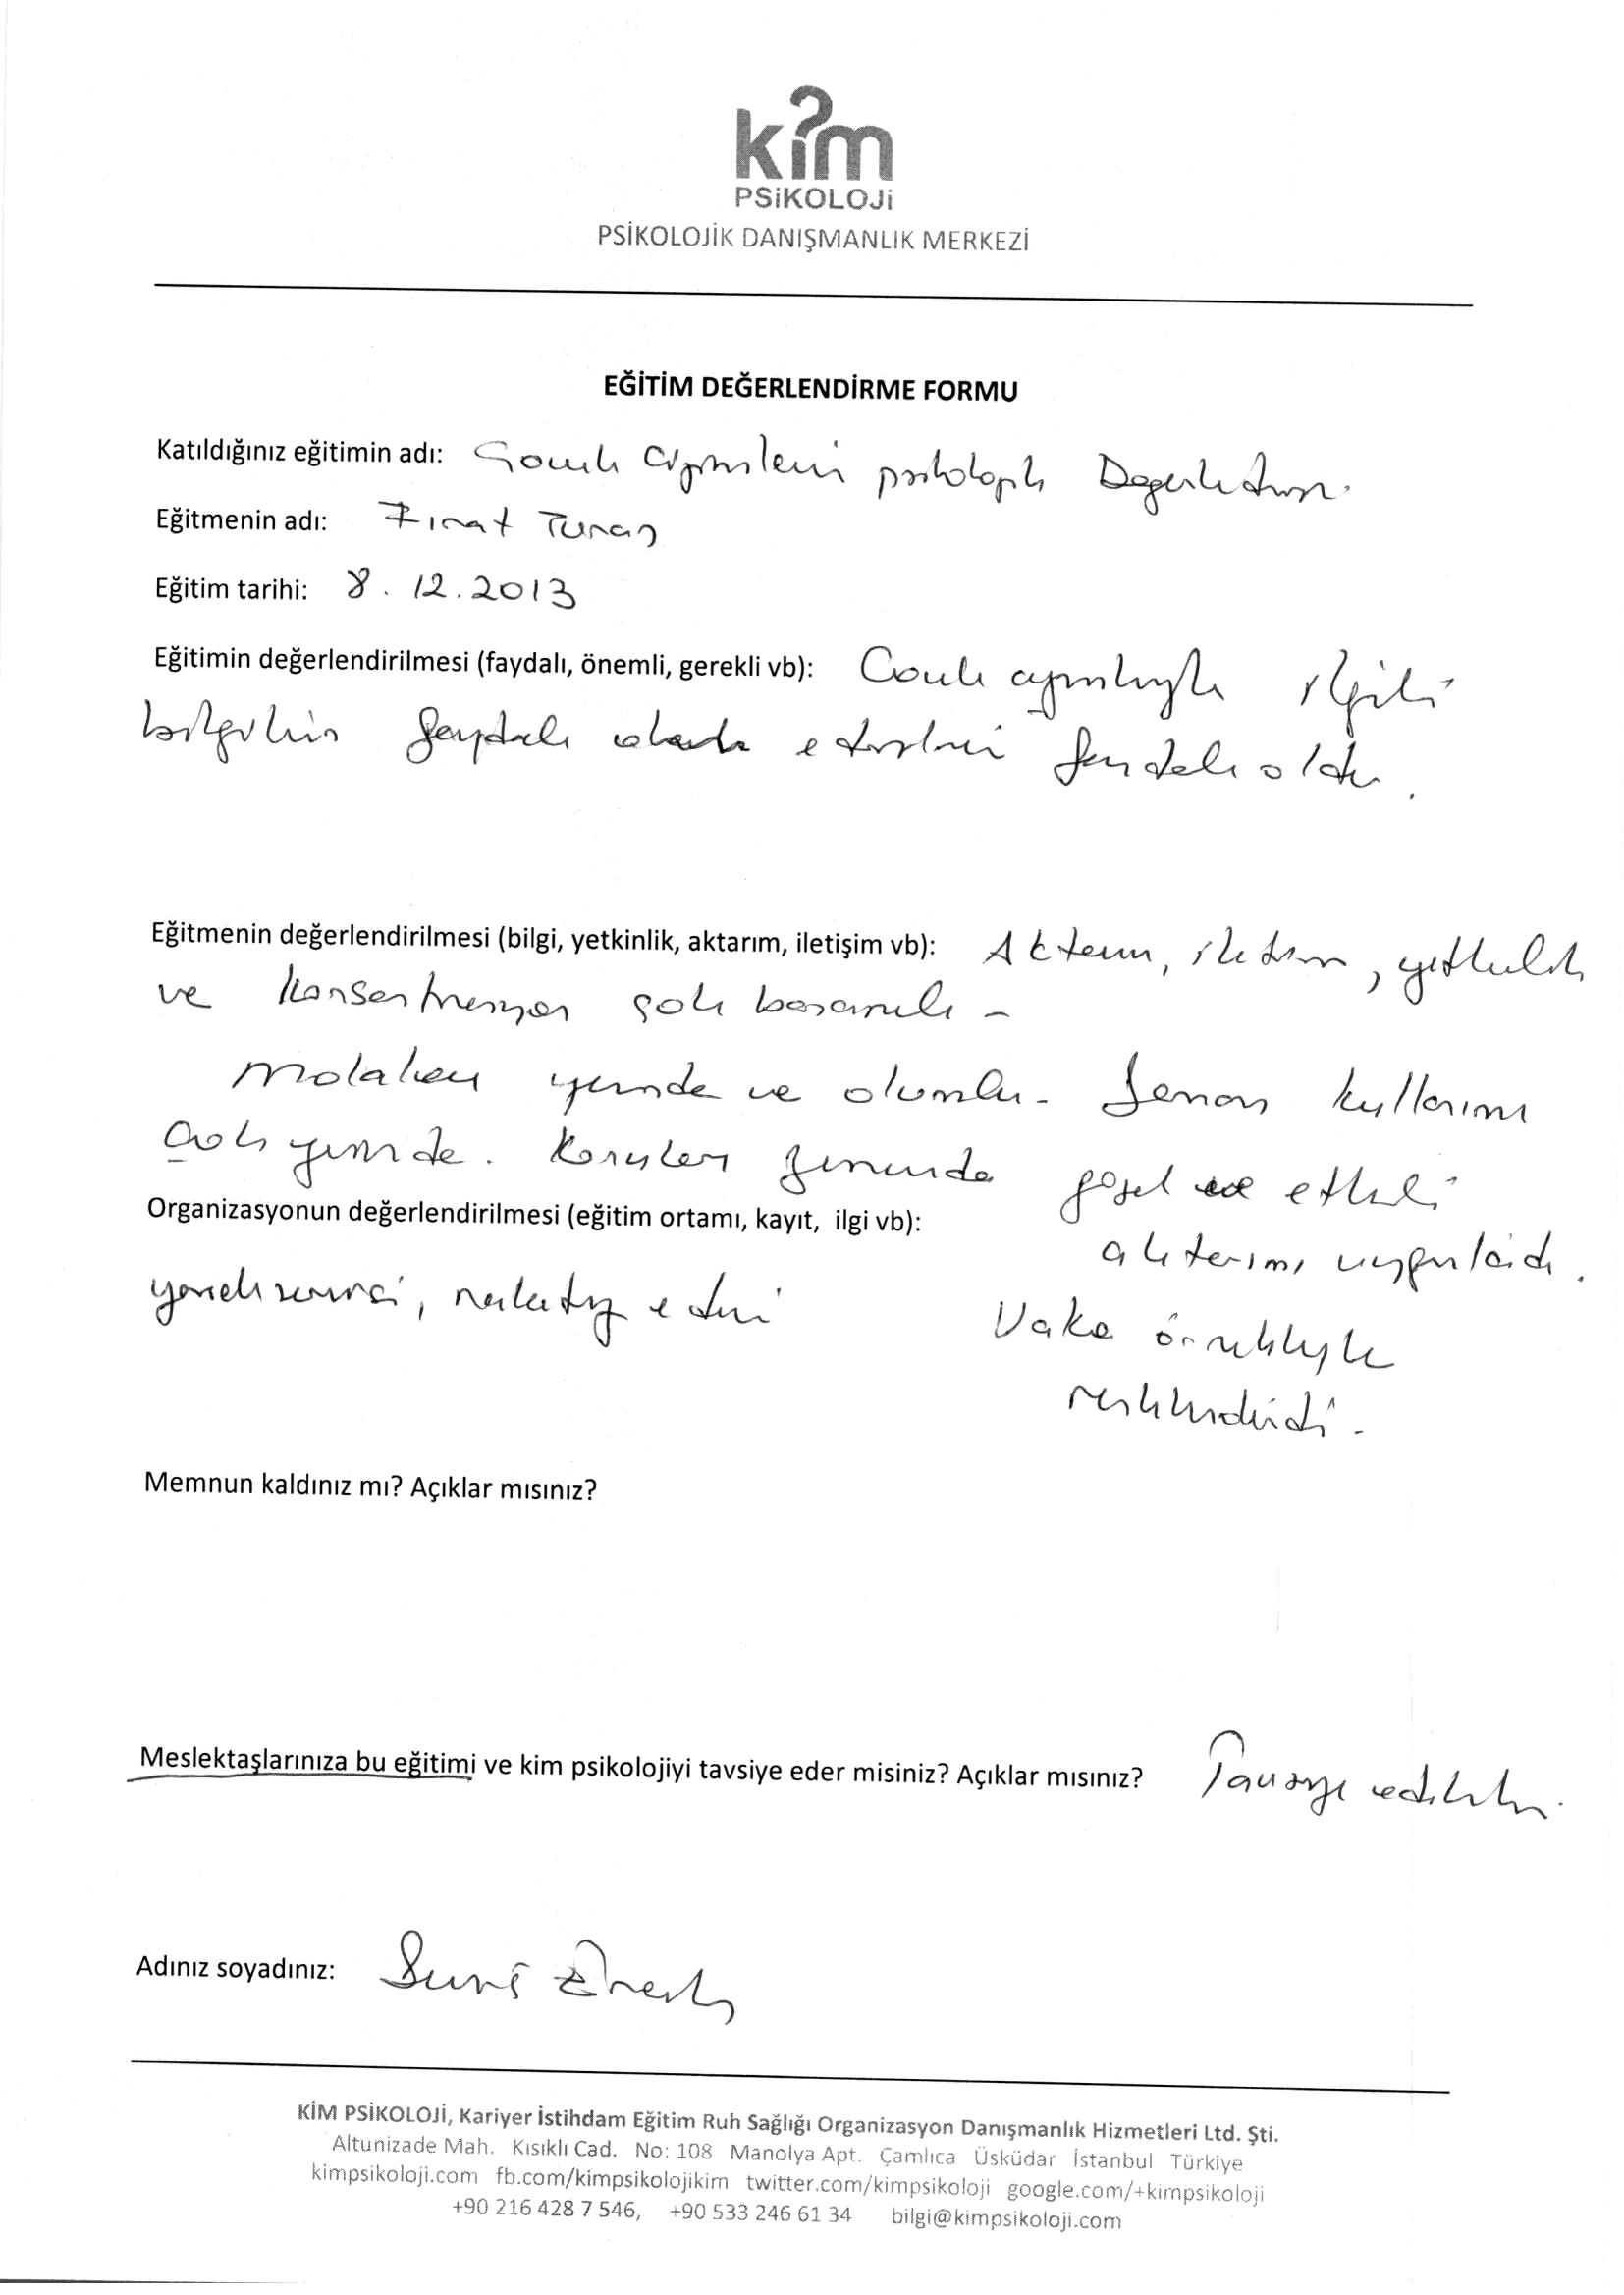 kim
PSiKOLOJi
PSİKOLOJİK DANIŞMANLIK MERKEZİ
EĞİTİM DEĞERLENDİRME FORMU
Katıldığınız eğitimin adı: psikolojik
Eğitmenin adı: Fırat Turan
Eğitim tarihi: 8.12.2013
Eğitimin değerlendirilmesi (faydalı, önemli, gerekli vb): ilgili
faydalı oldu.
Eğitmenin değerlendirilmesi (bilgi, yetkinlik, aktarım, iletişim vb): Aktarım, iletişim, yetkinlik
ve konsantrasyon çok başarılı -
Molaları yerinde ve olumlu - Zaman kullanımı
çok yerinde. güzel ve etkili
Organizasyonun değerlendirilmesi (eğitim ortamı, kayıt, ilgi vb):
aktarımı uyguladı.
Vaka örnekleriyle
renklendirdi.
Memnun kaldınız mı? Açıklar mısınız?
Meslektaşlarınıza bu eğitimi ve kim psikolojiyi tavsiye eder misiniz? Açıklar mısınız? Tavsiye edilebilir.
Adınız soyadınız:
KİM PSİKOLOJİ, Kariyer İstihdam Eğitim Ruh Sağlığı Organizasyon Danışmanlık Hizmetleri Ltd. Şti.
Altunizade Mah. Kısıklı Cad. No: 108 Manolya Apt. Çamlıca Üsküdar İstanbul Türkiye
kimpsikoloji.com fb.com/kimpsikolojikim twitter.com/kimpsikoloji google.com/+kimpsikoloji
+90 216 428 7 546, +90 533 246 61 34 bilgi@kimpsikoloji.com